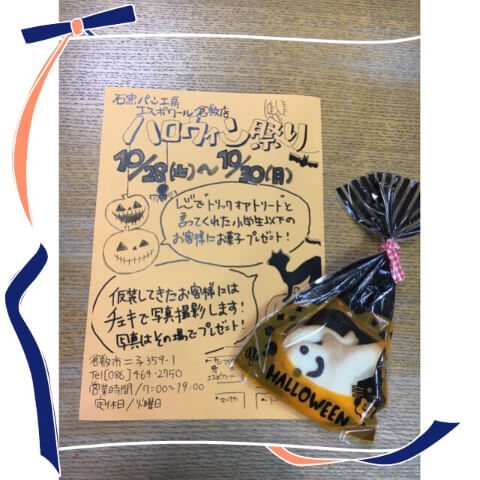 石窯パン工房
エスポワール 倉敷店
ハロウィン祭り
10/28(土)〜10/30(月)
レジで"トリック オア トリート"と
言ってくれた小学生以下の
お客様にお菓子プレゼント!
仮装してきたお客様には
チェキで写真撮影します!
写真はその場でプレゼント!
倉敷市二子359-1
Tel[086]464-2750
営業時間/7:00〜19:00
定休日/火曜日
エスポワール
HALLOWEEN